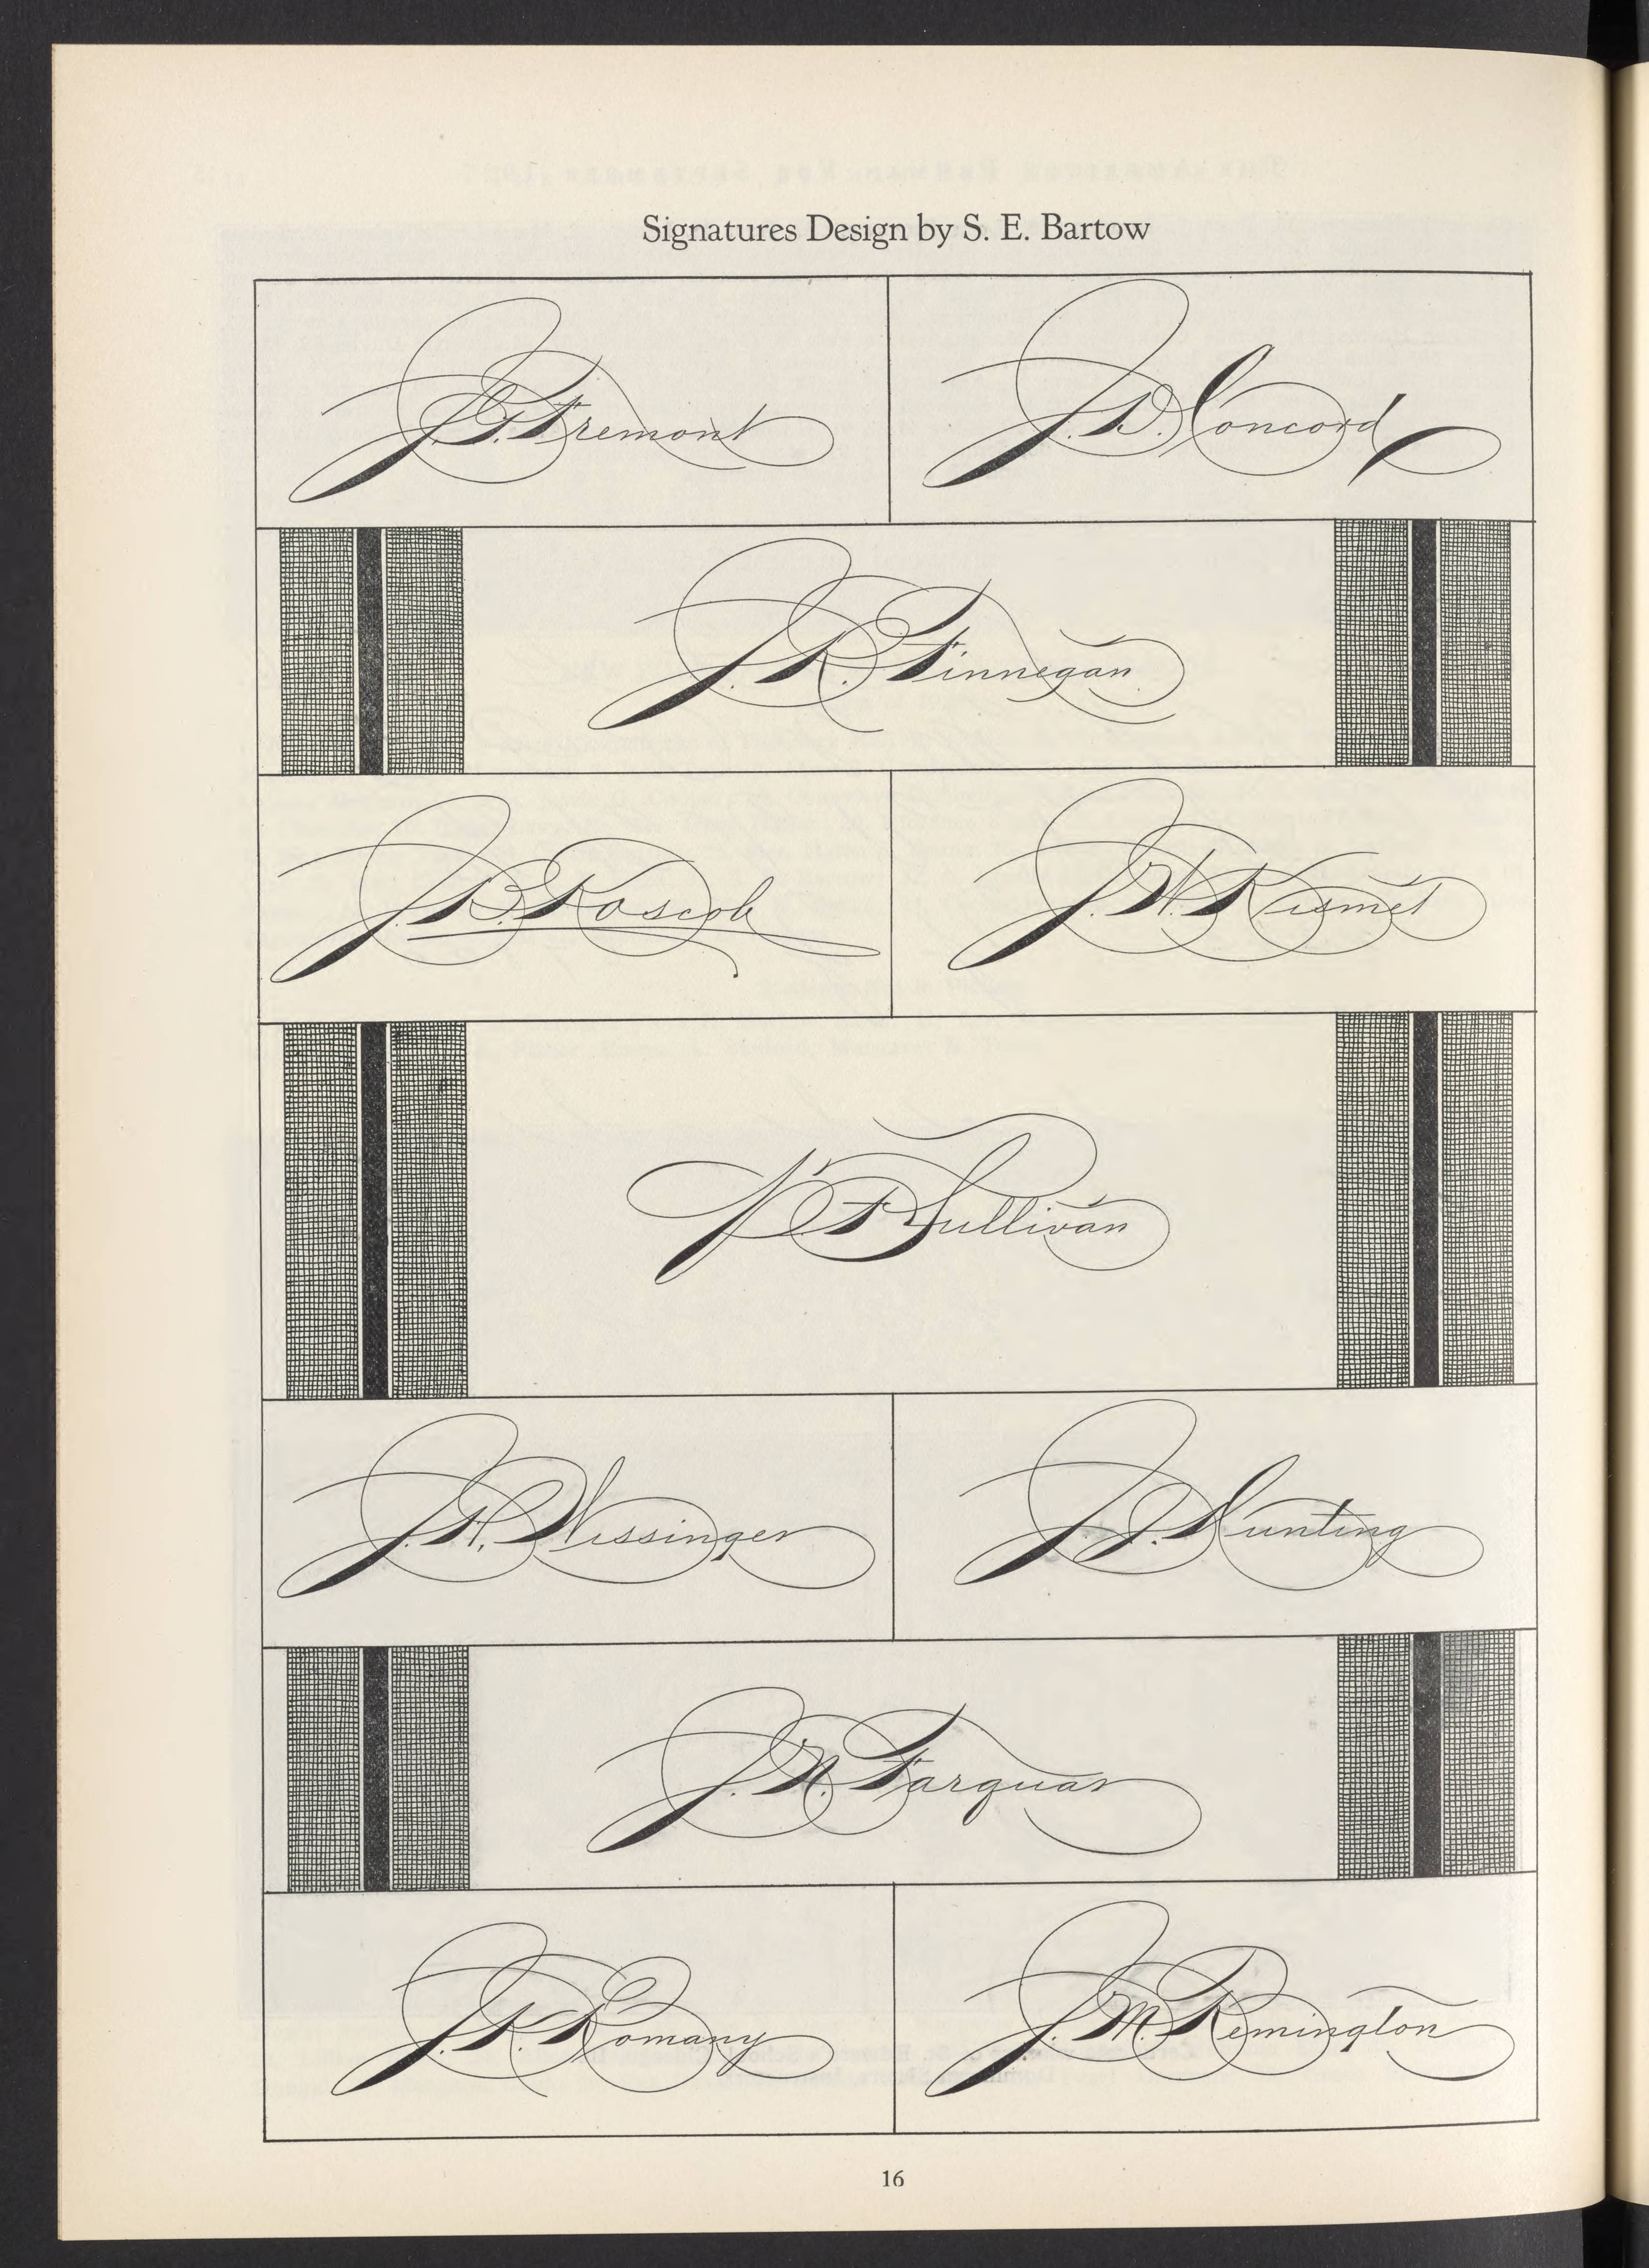 Signatures Design by S. E. Bartow
J. G. Fremont
J. D. Concord
J. R. Finnegan
J. B. Roscoe
J. W. Kismet
Sullivan
J. H. Wissinger
J. J. Hunting
J. N. Farquar
J. K. Romany
J. M. Remington
16